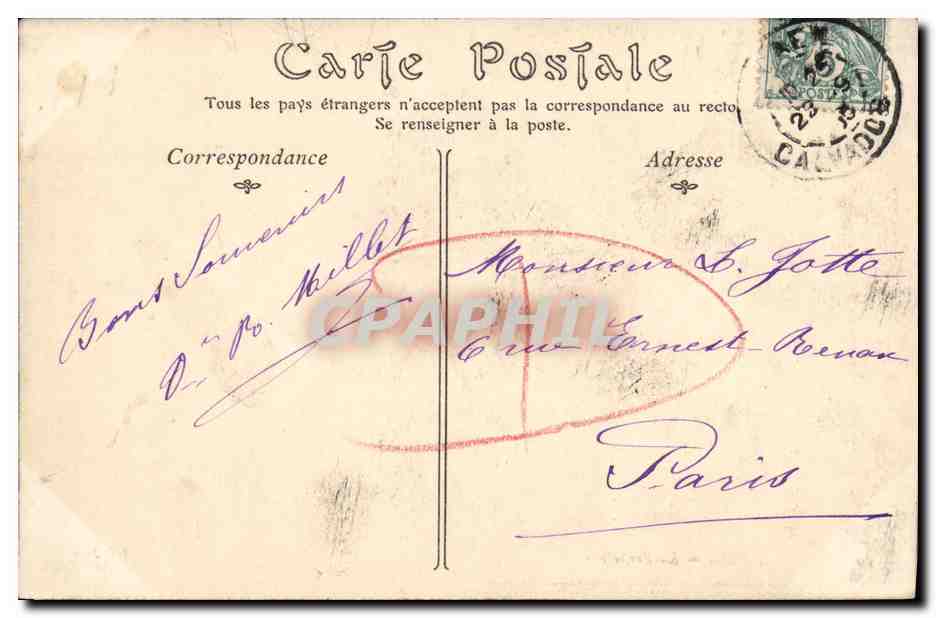 Carte Postale
Tous les pays étrangers n'acceptent pas la correspondance au recto
Se renseigner à la poste.
Correspondance
Adresse
CALVADOS
POSTES
Bons Souvenirs
Millet
Monsieur L. Jotte
6 rue Ernest-Renan
Paris
CPAPHIL